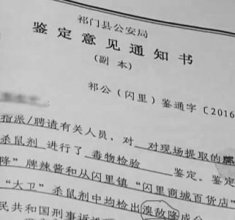 祁门县公安局
鉴定意见通知书
（副本）
祁公（闪里）鉴通字〔2016
指派/聘请有关人员，对 对现场提取的
杀鼠剂 进行了 毒物检验 鉴定。鉴定
隆”牌辣酱和从闪里镇“闪里商城百货店”
“大卫”杀鼠剂中均检出溴敌隆成
民共和国刑事诉讼